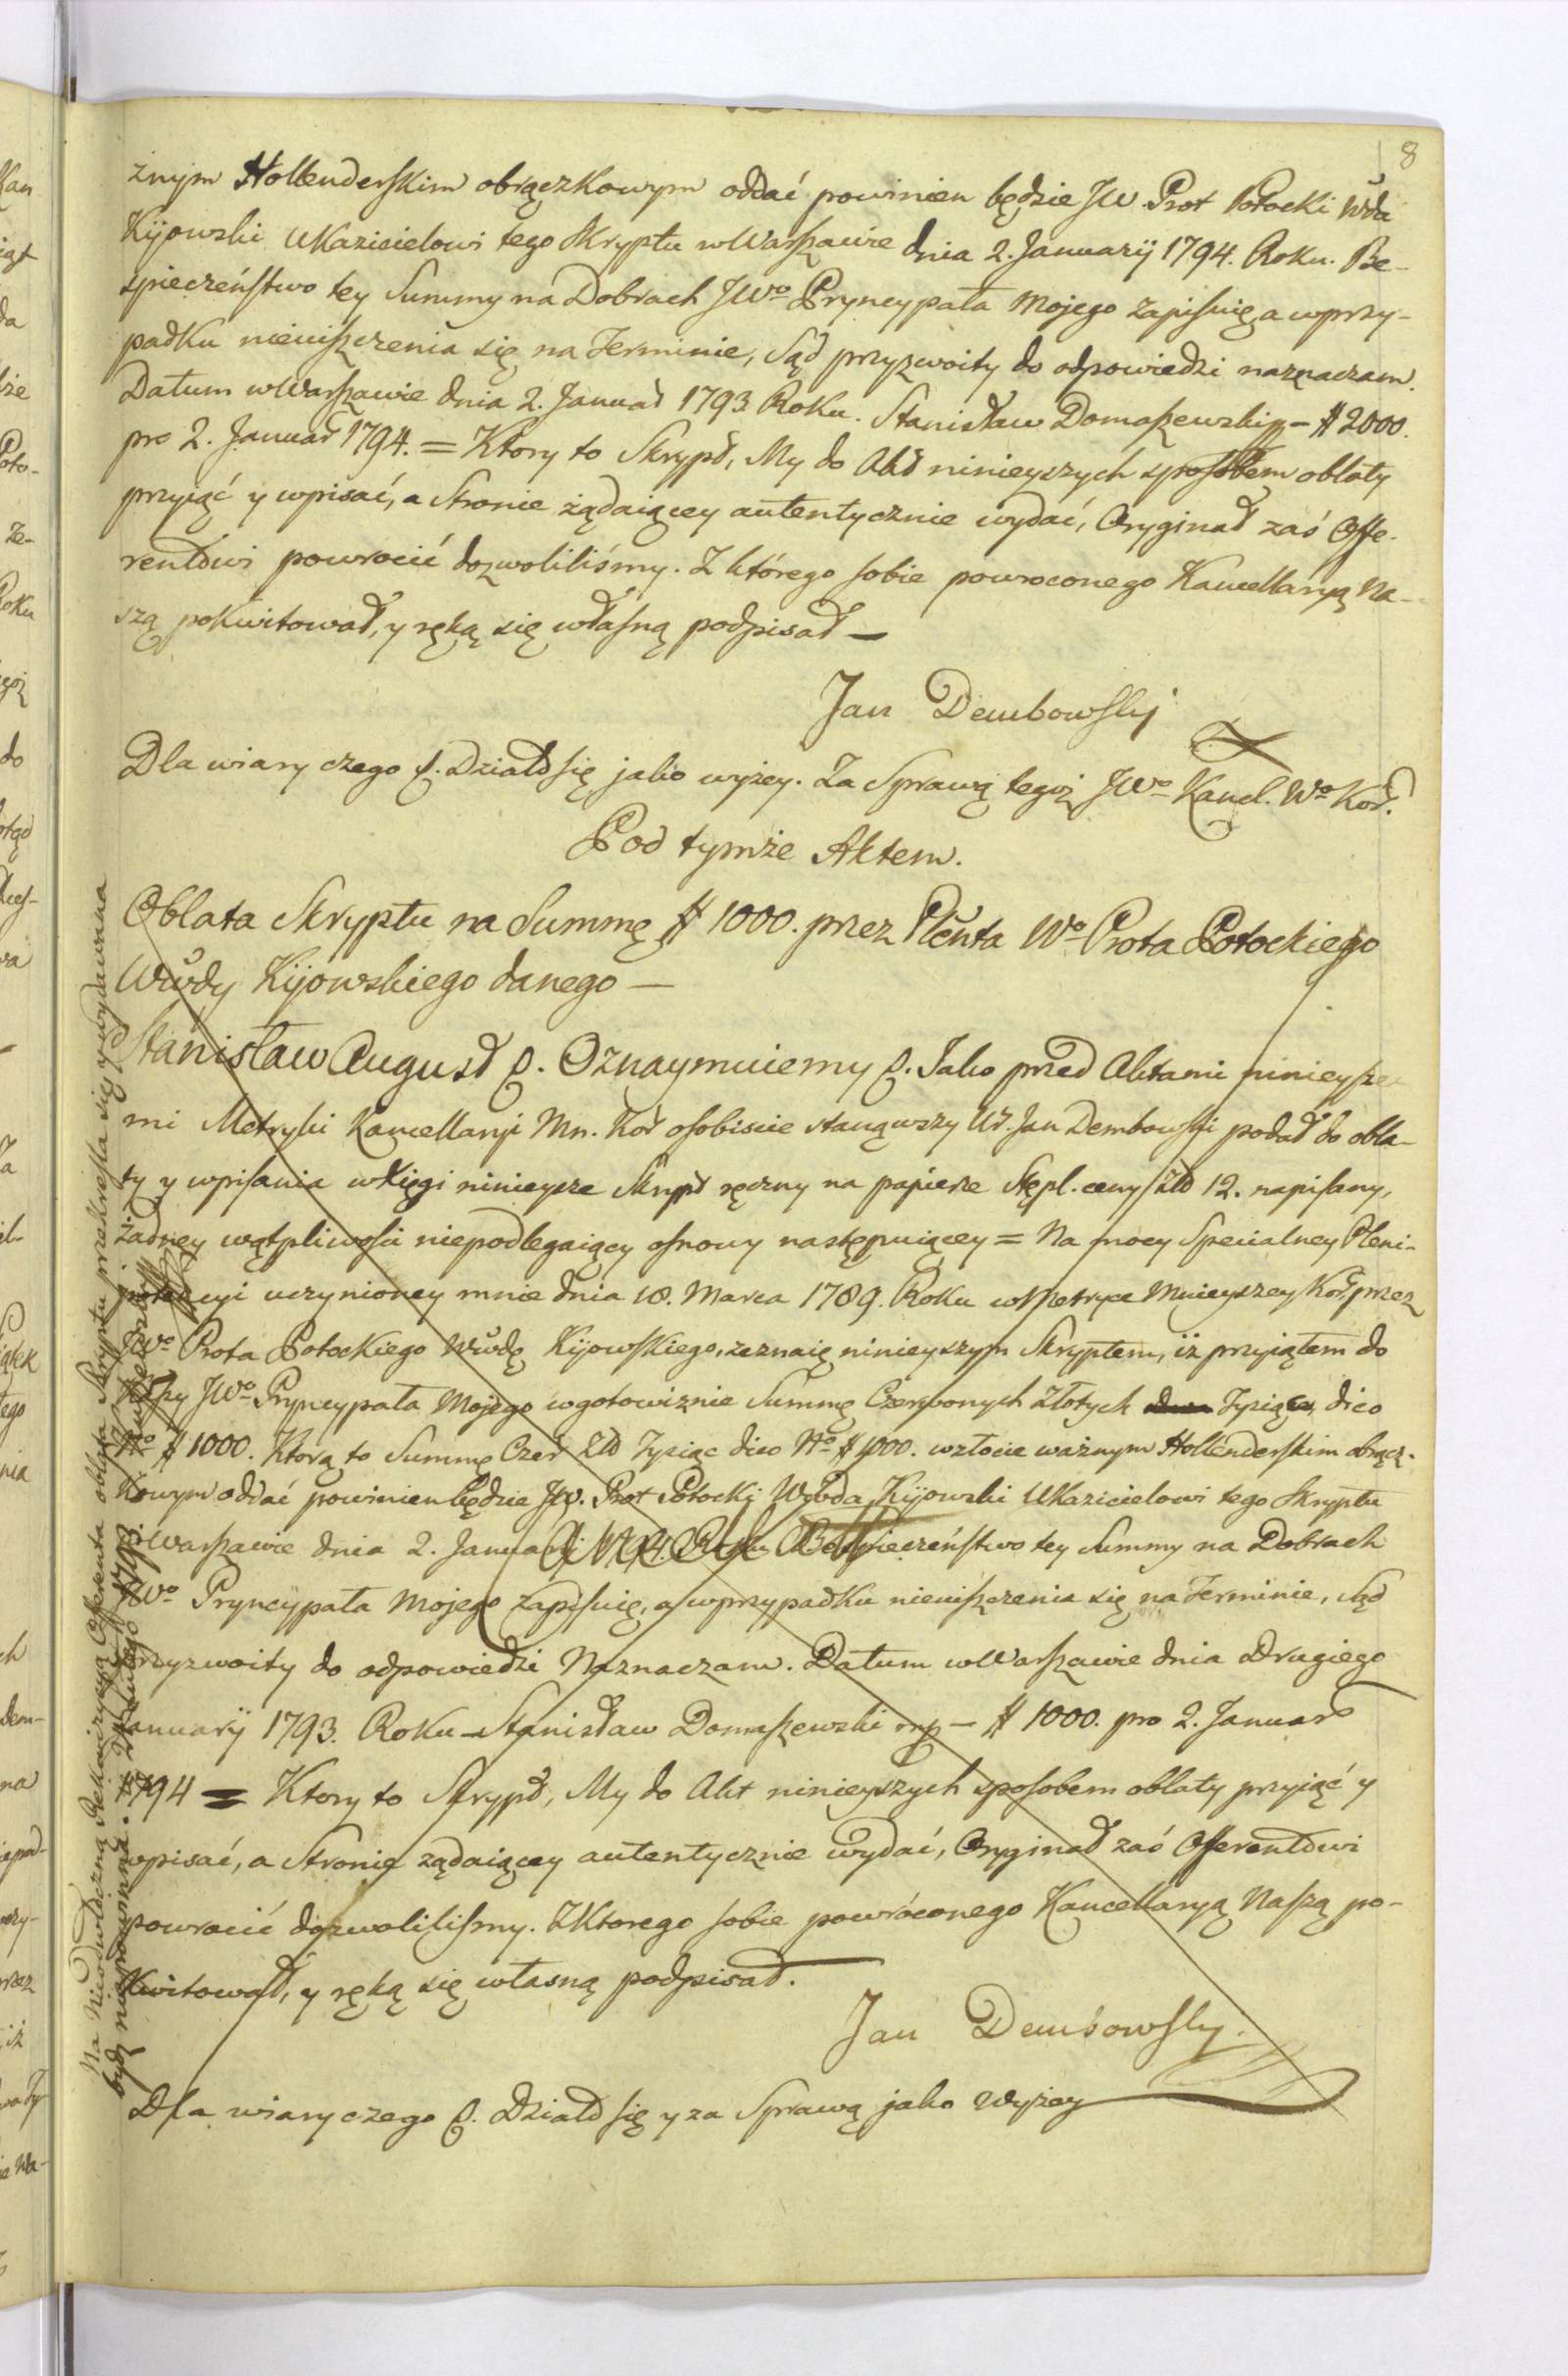 8
żnym Hollenderskim obrączkowym oddać powinien będzie JW. Prot Potocki Wda
Kijowski Ukazicielowi tego Skryptu w Warszawie dnia 2. Januarij 1794. Roku. Be-
spieczeństwo tey Summy na Dobrach JWo Pryncypała Mojego zapisuię, a wprzy-
padku nieuiszczenia się na Terminie, Sąd przyzwoity do odpowiedzi naznaczam.
Datum w Warszawie dnia 2. Januar 1793 Roku. Stanisław Domaszewski mp – # 2000.
pro 2. Januar 1794. = Ktory to Skrypt, My do Akt ninieyszych sposobem oblaty
przyiąć y wpisać, a Stronie żądaiącey autentycznie wydać, Oryginał zaś Offe-
rentowi powrocić dozwoliliśmy. Z którego sobie powroconego Kancellaryą Na-
szą pokwitował, y ręką się własną podpisał –
Jan Dembowski
Dla wiary czego p. Działo się jako wyżey. Za Sprawą tegoż JWo Kancl. Wo Kor.
Pod tymże Aktem.
Oblata Skryptu na Summę # 1000. przez Plenta Wo Prota Potockiego
Wwdy Kijowskiego danego –
Stanisław August p. Oznaymuiemy p. Jako przed Aktami ninieysze-
mi Metryki Kancellaryi Mn. Kor osobiscie stanąwszy Ur. Jan Dembowski podał do obla-
ty y wpisania w Xięgi ninieysze Skrypt ręczny na papierze Stępl. ceny Złt 12. napisany,
żadney wątpliwości niepodlegaiący osnowy następuiącey = Na mocy Specialney Pleni-
potencyi uczynioney mnie dnia 18. Marca 1789. Roku w Metryce Mnieyszey Kor przez
JWo Prota Potockiego Wwdę Kijowskiego, zeznaię ninieyszym Skryptem, iż przyiąłem do
JWo Pryncypała Mojego w gotowiznie Summę Czerwonych Złotych Tysiąc, dico
No # 1000. Ktorą to Summę Czer Złt Tysiąc dico No # 1000. w złocie ważnym Hollenderskim obrącz-
kowym oddać powinien będzie JW. Prot Potocki Wwda Kijowski Ukazicielowi tego Skryptu
w Warszawie dnia 2. Januarij 1794. Roku Bespieczeństwo tey Summy na Dobrach
JWo Pryncypała Mojego zapisuię, a wprzypadku nieuiszczenia się na Terminie, Sąd
przyzwoity do odpowiedzi Naznaczam. Datum w Warszawie dnia Drugiego
Januarij 1793. Roku – Stanisław Domaszewski mp – # 1000. pro 2. Januar
1794 = Ktory to Skrypt, My do Akt ninieyszych sposobem oblaty przyiąć y
wpisać, a Stronie żądaiącey autentycznie wydać, Oryginał zaś Offerentowi
powrocić dozwolilismy. Z Ktorego sobie powróconego Kancellaryą Naszą po-
kwitował, y ręką się własną podpisał.
Jan Dembowski.
Dla wiary czego p. Działo się y za Sprawą jako wyżey
Na Nieodwłoczną Rekwizycyą Offerenta oblata Skryptu przekreśla się y wydawana
bydź niepowinna. 1793